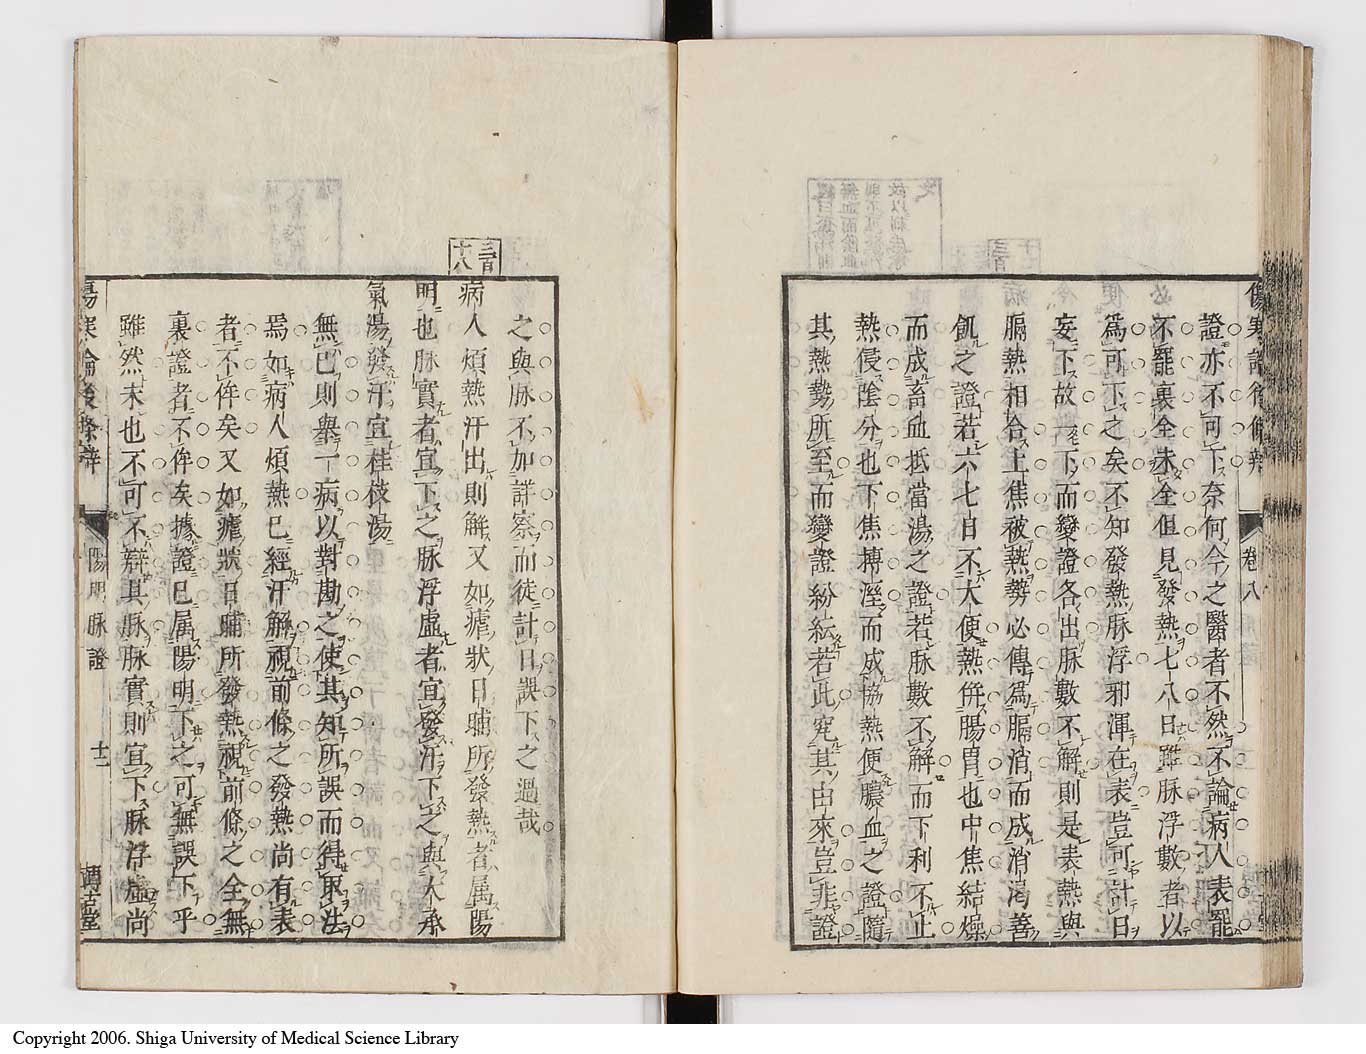 傷寒論後條辨
卷八
證亦不可下奈何今之醫者不然不論病人表罷
不罷裏全未全但見發熱七八日雖脉浮數者以
爲可下之矣不知發熱脉浮邪渾在表豈可計日
妄下故一下而變證各出脉數不解則是表熱與
膈熱相合上焦被熱勢必傳爲膈消而成消渴善
飢之證若六七日不大便熱倂腸胃也中焦結燥
而成畜血抵當湯之證若脉數不解而下利不止
熱侵陰分也下焦搏溼而成協熱便膿血之證隨
其熱勢所至而變證紛紜若此究其由來豈非證
之與脉不加詳察而徒計日誤下之過哉
三百十八
病人煩熱汗出則解又如瘧狀日晡所發熱者属陽
明也脉實者宜下之脉浮虛者宜發汗下之與大承
氣湯發汗宜桂枝湯
無已則舉一病以對勘之使其知所誤而得取法
焉如病人煩熱已經汗解視前條之發熱尚有表
者不侔矣又如瘧狀日晡所發熱視前條之全無
裏證者不侔矣據證已属陽明下之可無誤下乎
雖然未也不可不辯其脉脉實則宜下脉浮虛尚
傷寒論後條辨
陽明脉證
十二
博古堂
Copyright 2006. Shiga University of Medical Science Library